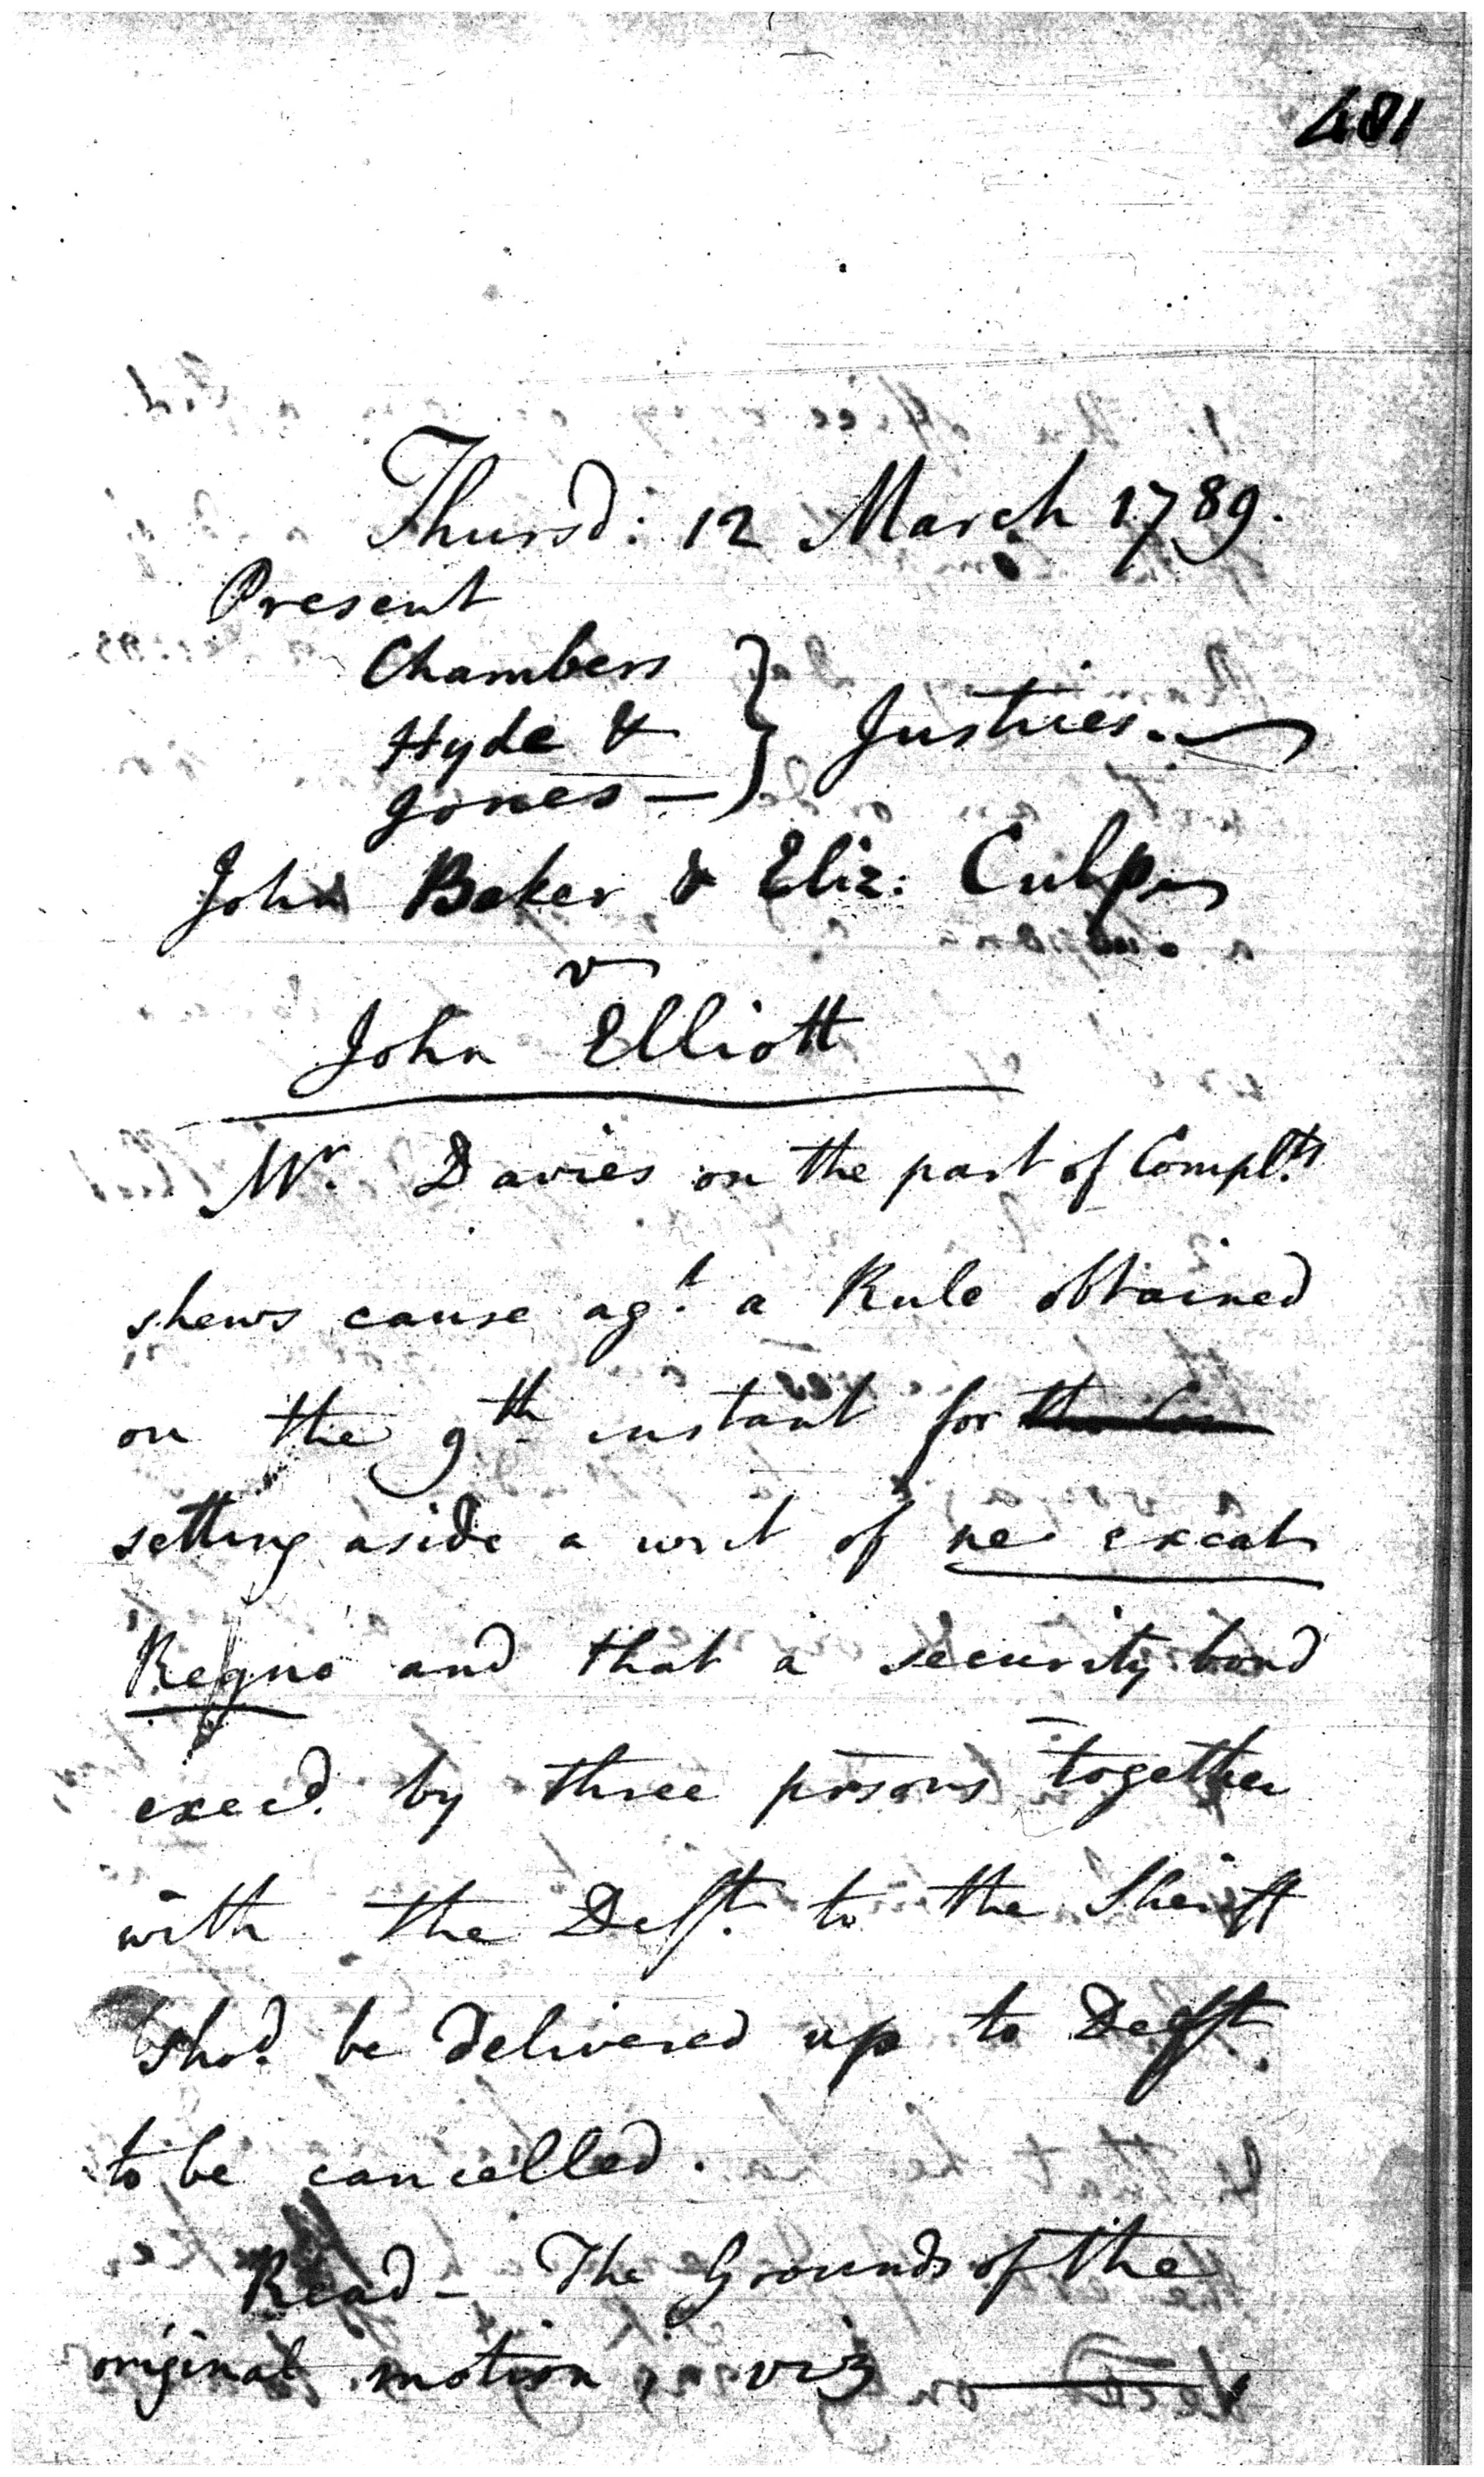 481
Thursd: 12 March 1789.
Present
Chambers
Hyde &
Jones —
} Justices.
John Baker & Eliz: Culper
v
John Elliott
Mr. Davies on the part of Complts
shews cause agt. a Rule obtained
on the 9th instant for
setting aside a writ of ne exeat
Regno and that a security bond
execd. by three psons together
with the Deft. to the Sheriff
shod. be delivered up to Deft.
to be cancelled.
Read - The Grounds of the
original motion, viz